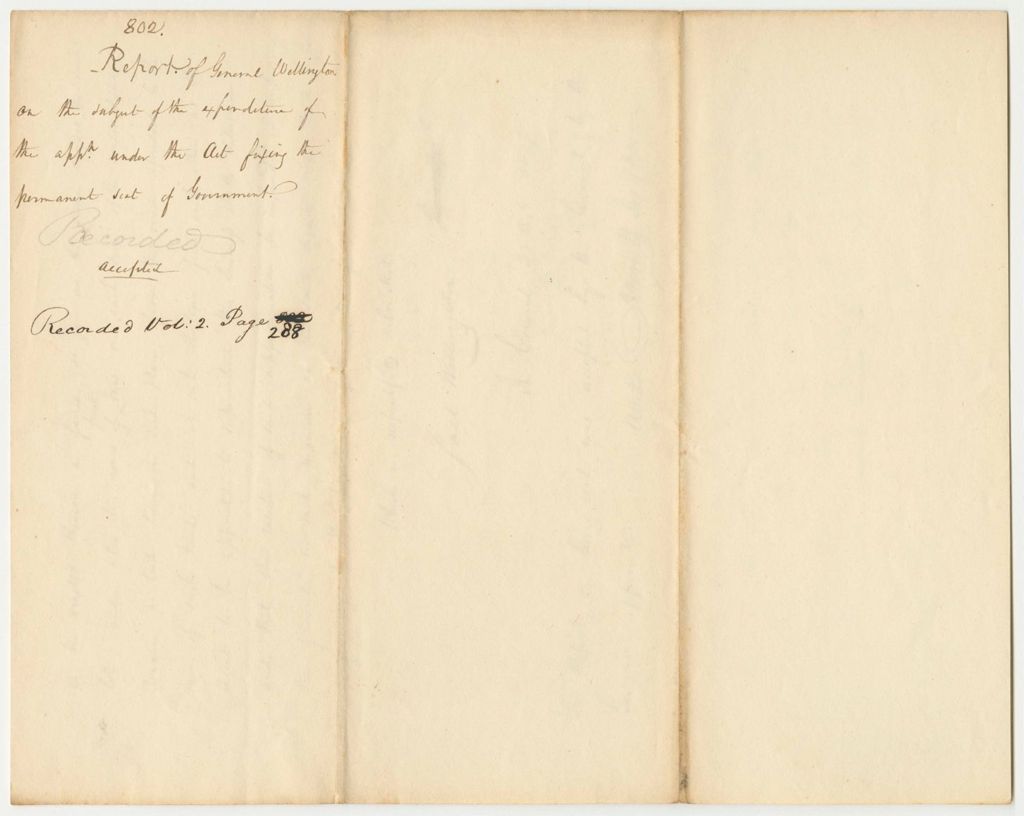 802.
Report of General Wellington
on the subject of the expenditure of
the appn. under the Act fixing the
permanent seat of Government.
Recorded
accepted
Recorded Vol: 2. Page
288